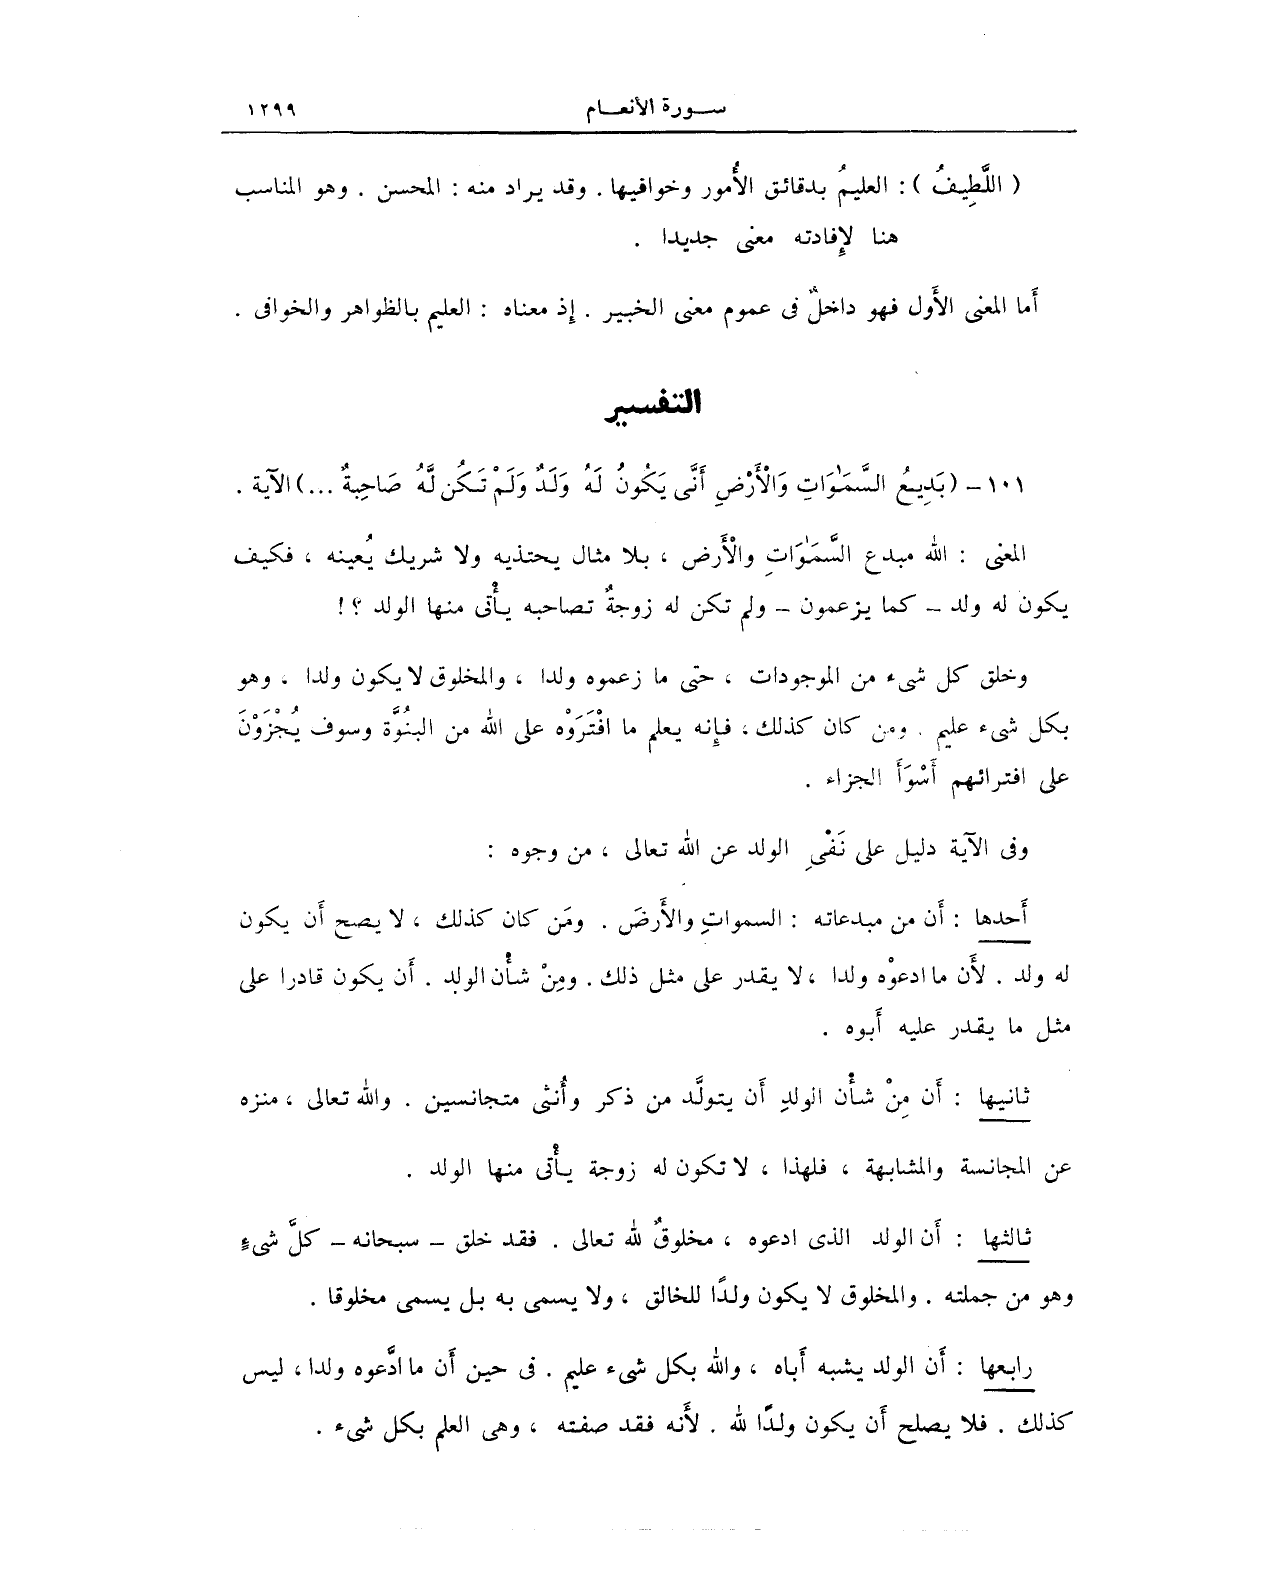 سورة الأنعام ١٢٩٩
( اللَّطِيفُ ) : العليمُ بدقائق الأُمور وخوافيها . وقد يراد منه : المحسن . وهو المناسب
هنا لإِفادته معنى جديدا .
أَما المعنى الأَول فهو داخلٌ فى عموم معنى الخبير . إِذ معناه : العليم بالظواهر والخوافى .
التفسير
١٠١ - (بَدِيعُ السَّمَٰوَاتِ وَالْأَرْضِ أَنَّى يَكُونُ لَهُ وَلَدٌ وَلَمْ تَكُن لَّهُ صَاحِبةٌ ...) الآية .
المعنى : الله مبدع السَّمَٰوَاتِ والْأَرض ، بلا مثال يحتذيه ولا شريك يُعينه ، فكيف
يكون له ولد - كما يزعمون - ولم تكن له زوجةٌ تصاحبه يأْتى منها الولد ؟ !
وخلق كل شىء من الموجودات ، حتى ما زعموه ولدا ، والمخلوق لا يكون ولدا ، وهو
بكل شىء عليم . ومن كان كذلك ، فإِنه يعلم ما افْتَرَوْه على الله من البنُوَّة وسوف يُجْزَوْنَ
على افترائهم أَسْوَأَ الجزاء .
وفى الآية دليل على نَفْىِ الولد عن الله تعالى ، من وجوه :
أَحدها : أَن من مبدعاته : السمواتِ والأَرضَ . ومَن كان كذلك ، لا يصح أَن يكون
له ولد . لأَن ما ادعوْه ولدا ، لا يقدر على مثل ذلك . ومِنْ شأْن الولد . أَن يكون قادرا على
مثل ما يقدر عليه أَبوه .
ثانيها : أَن مِنْ شأْن الولدِ أَن يتولَّد من ذكر وأُنثى متجانسين . والله تعالى ، منزه
عن المجانسة والمشابهة ، فلهذا ، لا تكون له زوجة يأْتى منها الولد .
ثالثها : أَن الولد الذى ادعوه ، مخلوقٌ لله تعالى . فقد خلق - سبحانه - كلَّ شىءٍ
وهو من جملته . والمخلوق لا يكون ولدًا للخالق ، ولا يسمى به بل يسمى مخلوقا .
رابعها : أَن الولد يشبه أَباه ، والله بكل شىء عليم . فى حين أَن ما ادَّعوه ولدا ، ليس
كذلك . فلا يصلح أَن يكون ولدًا لله . لأَنه فقد صفته ، وهى العلم بكل شىء .